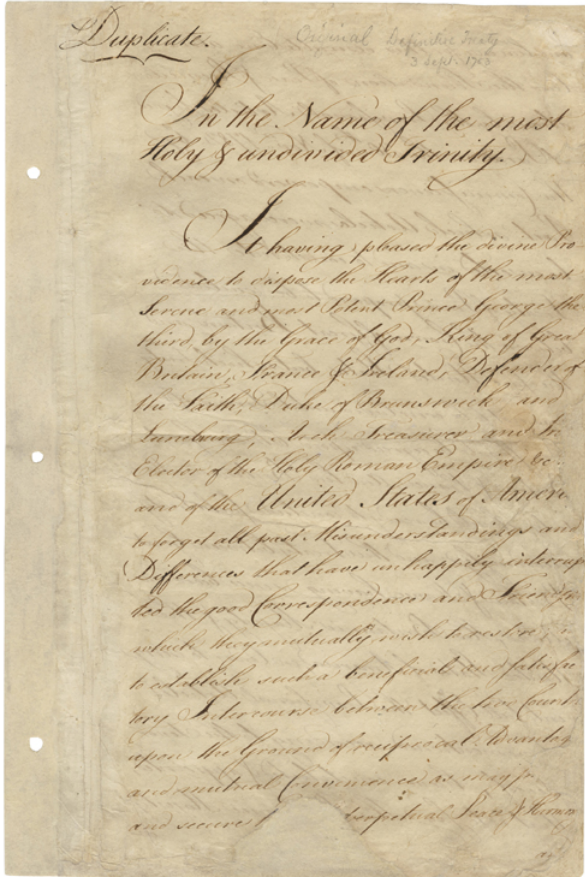 Duplicate.
Original Definitive Treaty
3 Sept. 1783
In the Name of the most
Holy & undivided Trinity.
It having pleased the divine Pro-
vidence to dispose the Hearts of the most
Serene and most Potent Prince George the
third, by the Grace of God, King of Great
Britain, France & Ireland, Defender of
the Faith, Duke of Brunswick and
Lunebourg, Arch Treasurer and
Elector of the Holy Roman Empire &c.
and of the United States of Ameri
to forget all past Misunderstandings and
Differences that have unhappily interrup
ted the good Correspondence and Friendship
which they mutually wish to restore;
to establish such a beneficial and satisfac
tory Intercourse between the two Count
upon the Ground of reciprocal Advantag
and mutual Convenience as may
and secure perpetual Peace & Harmony